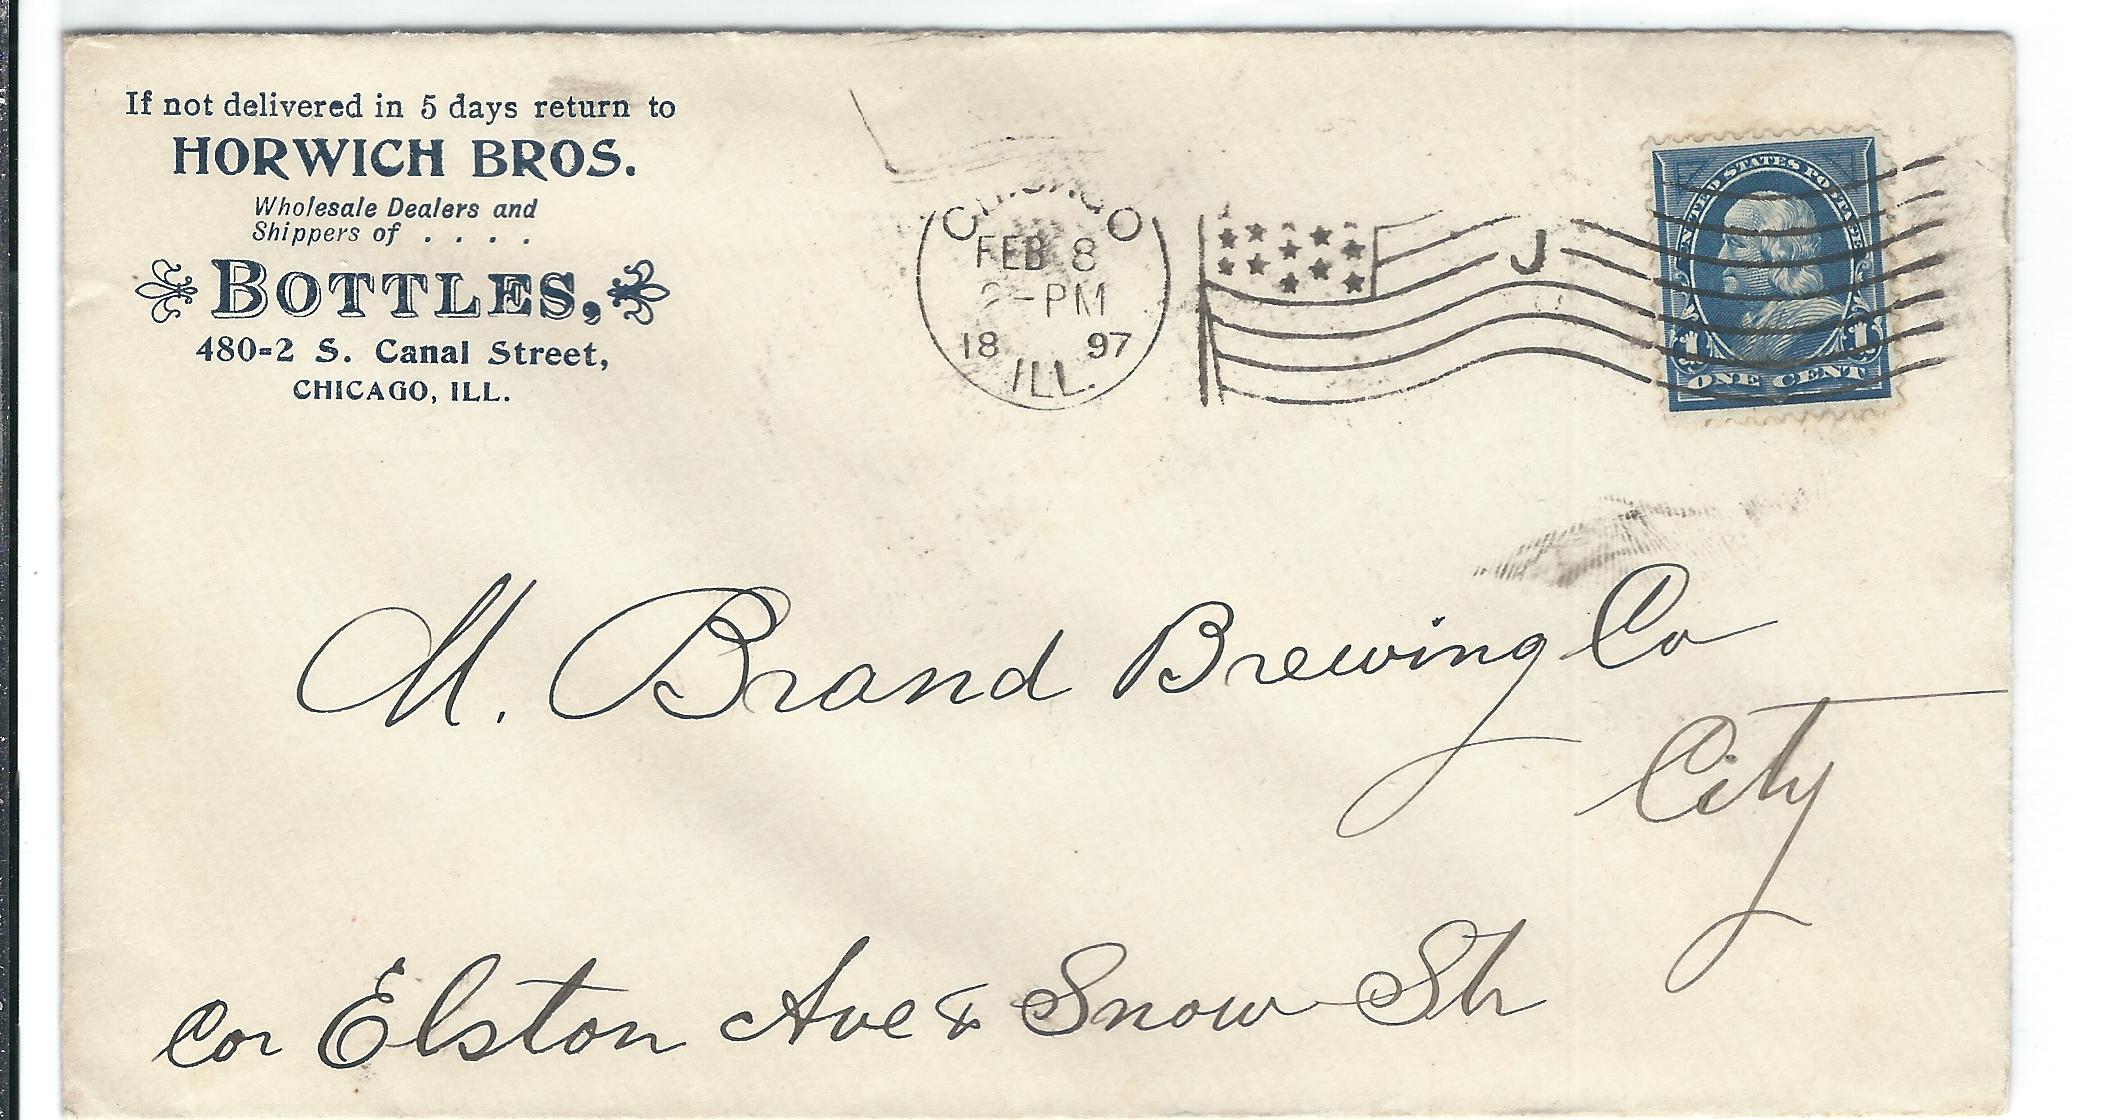 If not delivered in 5 days return to
HORWICH BROS.
Wholesale Dealers and
Shippers of . . . .
BOTTLES,
480=2 S. Canal Street,
CHICAGO, ILL.
CHICAGO
FEB 8
-PM
18 97
ILL.
J
UNITED STATES POSTAGE
1 1
ONE CENT
M. Brand Brewing Co
City
Cor Elston Ave & Snow Str